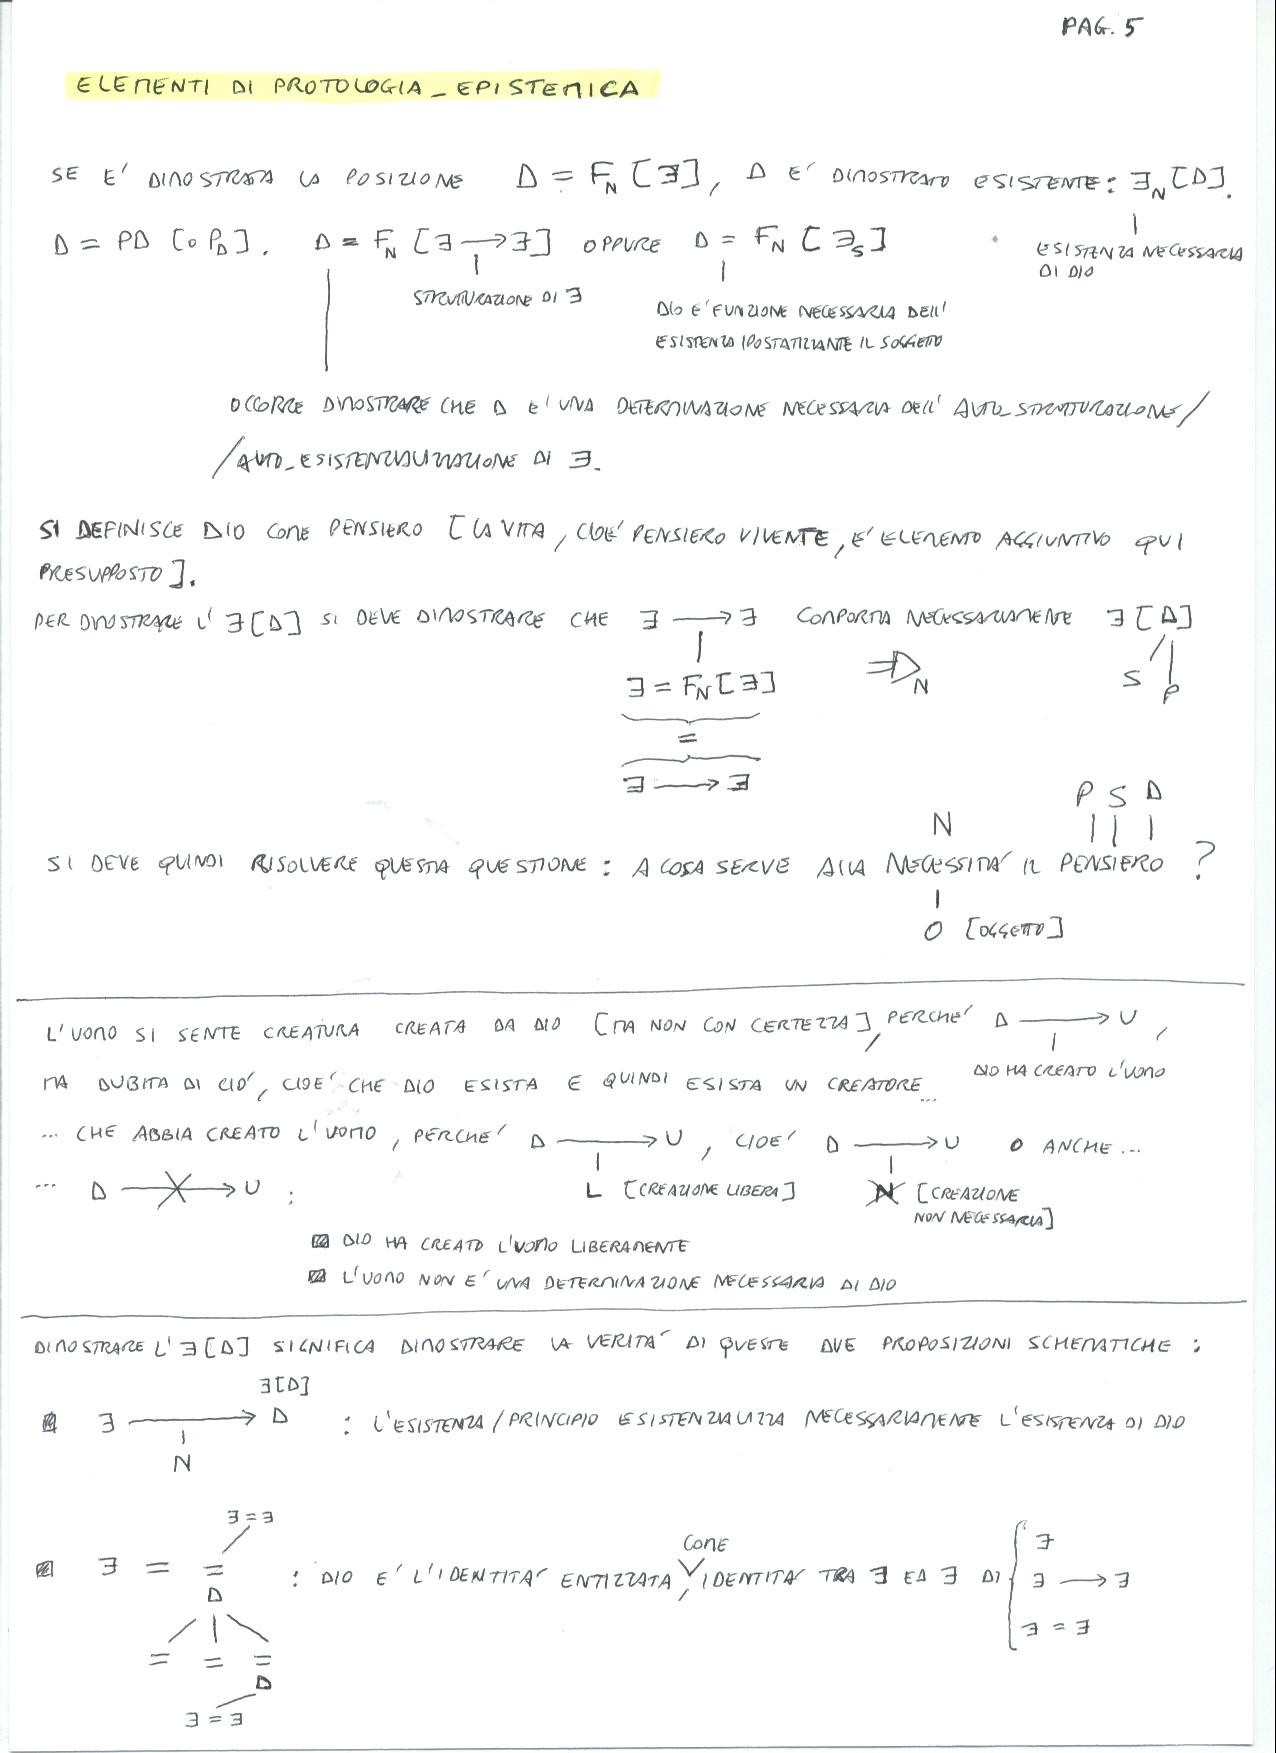 PAG. 5
ELEMENTI DI PROTOLOGIA_EPISTEMICA
SE E' DIMOSTRATA LA POSIZIONE D = F_N [∃], D E' DIMOSTRATO ESISTENTE: ∃_N [D].
D = PD [O P_D]. D = F_N [∃ → ∃] OPPURE D = F_N [∃_S]
ESISTENZA NECESSARIA
DI DIO
STRUTTURAZIONE DI ∃
DIO E' FUNZIONE NECESSARIA DELL'
ESISTENZA IPOSTATIZZANTE IL SOGGETTO
OCCORRE DIMOSTRARE CHE D E' UNA DETERMINAZIONE NECESSARIA DELL' AUTO_STRUTTURAZIONE/
/AUTO_ESISTENZIALIZZAZIONE DI ∃.
SI DEFINISCE DIO COME PENSIERO [LA VITA, CIOE' PENSIERO VIVENTE, E' ELEMENTO AGGIUNTIVO QUI
PRESUPPOSTO].
PER DIMOSTRARE L' ∃[D] SI DEVE DIMOSTRARE CHE ∃ → ∃ COMPORTA NECESSARIAMENTE ∃[D]
∃ = F_N [∃] ⇒ N S P
=
∃ → ∃
P S D
N
SI DEVE QUINDI RISOLVERE QUESTA QUESTIONE: A COSA SERVE ALLA NECESSITA' IL PENSIERO ?
O [OGGETTO]
L'UOMO SI SENTE CREATURA CREATA DA DIO [MA NON CON CERTEZZA], PERCHE' D → U,
DIO HA CREATO L'UOMO
MA DUBITA DI CIO', CIOE' CHE DIO ESISTA E QUINDI ESISTA UN CREATORE...
... CHE ABBIA CREATO L'UOMO, PERCHE' D → U, CIOE' D → U O ANCHE...
... D → U : L [CREAZIONE LIBERA] N [CREAZIONE
NON NECESSARIA]
DIO HA CREATO L'UOMO LIBERAMENTE
L'UOMO NON E' UNA DETERMINAZIONE NECESSARIA DI DIO
DIMOSTRARE L'∃[D] SIGNIFICA DIMOSTRARE LA VERITA' DI QUESTE DUE PROPOSIZIONI SCHEMATICHE :
∃[D]
∃ → D : L'ESISTENZA/PRINCIPIO ESISTENZIALIZZA NECESSARIAMENTE L'ESISTENZA DI DIO
N
∃ = ∃
COME
∃ = = : DIO E' L'IDENTITA' ENTIZZATA, IDENTITA' TRA ∃ ED ∃ DI { ∃
D ∃ → ∃
∃ = ∃
= = =
D
∃ = ∃